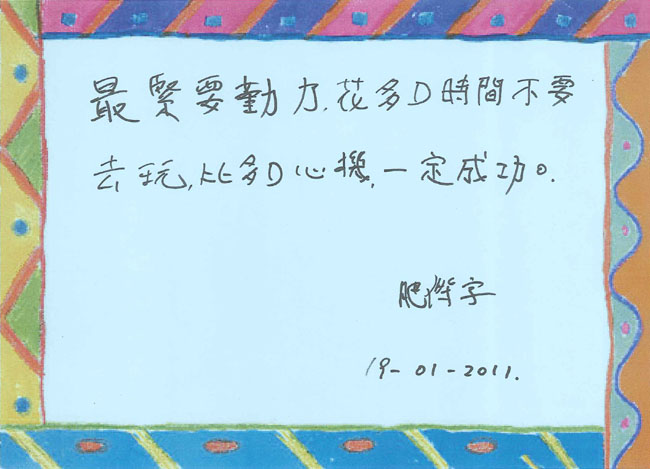 最緊要勤力,花多D時間不要
去玩,比多D心機,一定成功。
肥傑字
19-01-2011.